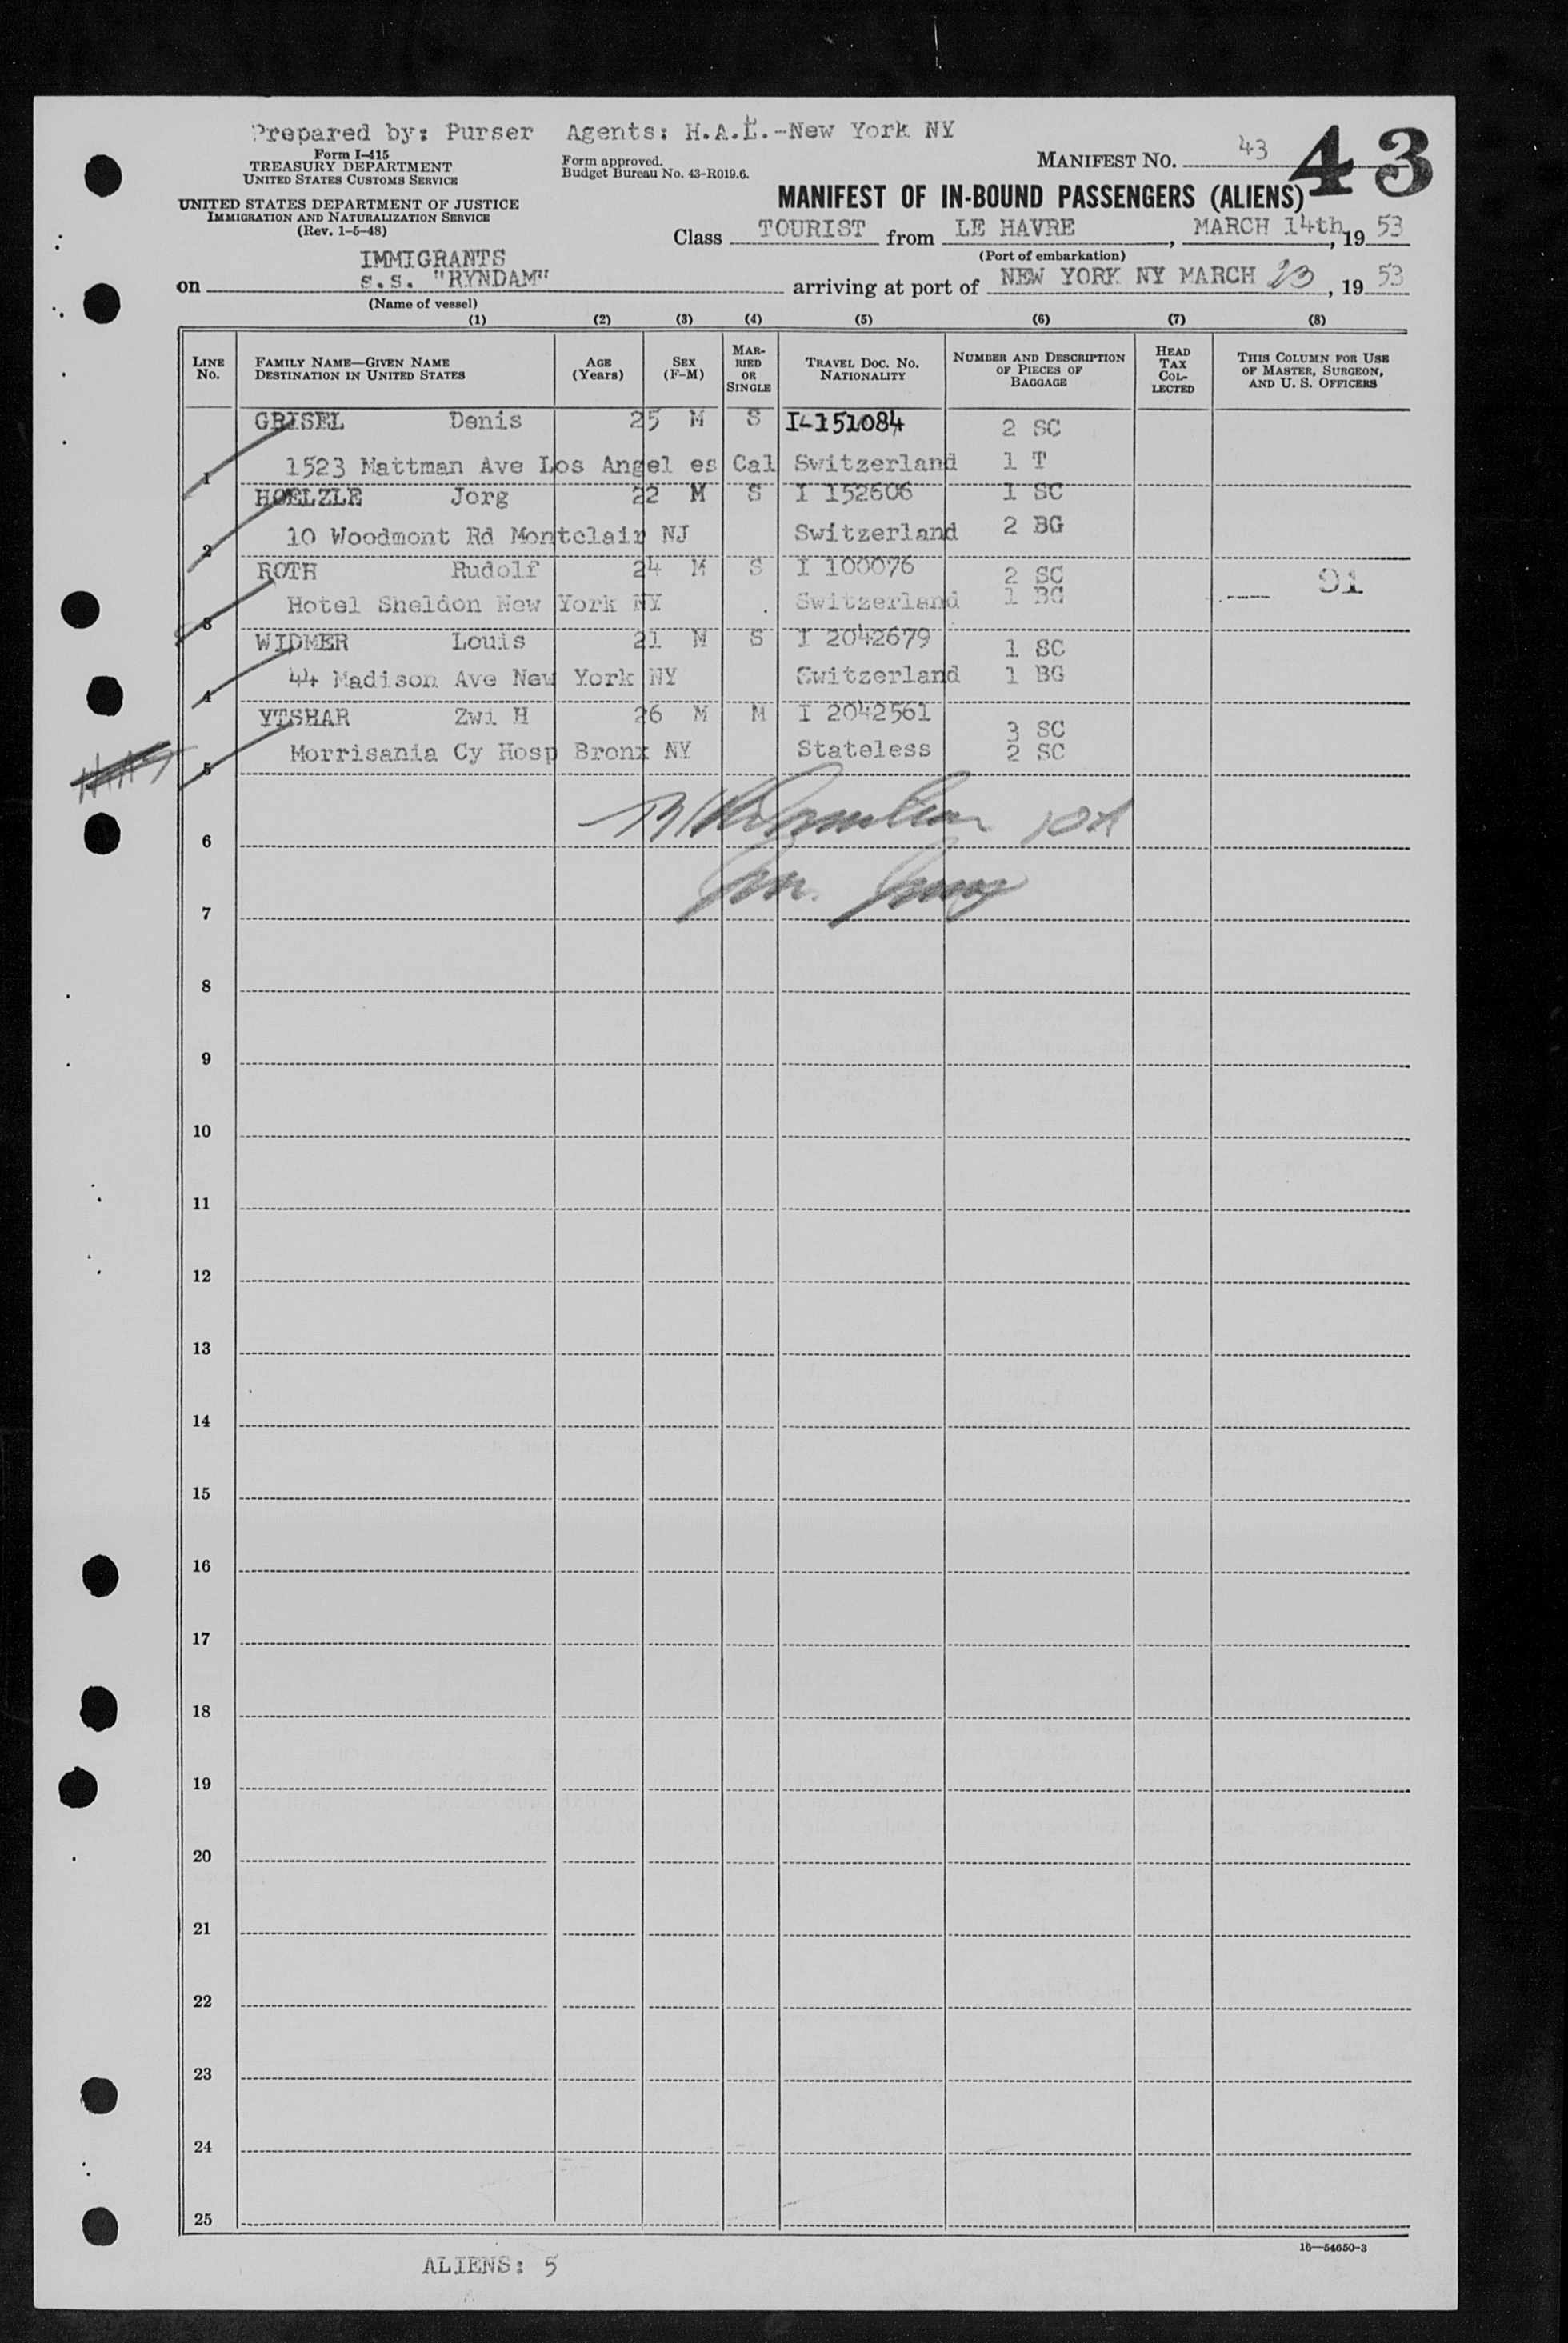 Prepared by: Purser Agents: H.A.L.-New York NY
Form I-415
TREASURY DEPARTMENT
UNITED STATES CUSTOMS SERVICE
Form approved.
Budget Bureau No. 43-R019.6.
MANIFEST NO. 43
43
UNITED STATES DEPARTMENT OF JUSTICE
IMMIGRATION AND NATURALIZATION SERVICE
(Rev. 1-5-48)
MANIFEST OF IN-BOUND PASSENGERS (ALIENS)
Class TOURIST from LE HAVRE, MARCH 14th, 19 53
(Port of embarkation)
IMMIGRANTS
on s.s. "RYNDAM" arriving at port of NEW YORK NY MARCH 23, 19 53
(Name of vessel)
(1) (2) (3) (4) (5) (6) (7) (8)
LINE NO.
FAMILY NAME—GIVEN NAME
DESTINATION IN UNITED STATES
AGE (Years)
SEX (F-M)
MARRIED OR SINGLE
TRAVEL DOC. NO.
NATIONALITY
NUMBER AND DESCRIPTION OF PIECES OF BAGGAGE
HEAD TAX COLLECTED
THIS COLUMN FOR USE OF MASTER, SURGEON, AND U. S. OFFICERS
GRISEL Denis 25 M S I-151084 2 SC
1 1523 Mattman Ave Los Angel es Cal Switzerland 1 T
HOELZLE Jorg 22 M S I 152606 1 SC
2 10 Woodmont Rd Montclair NJ Switzerland 2 BG
ROTH Rudolf 24 M S I 100076 2 SC 91
3 Hotel Sheldon New York NY Switzerland 1 BG
WIDMER Louis 21 M S I 2042679 1 SC
4 44 Madison Ave New York NY Switzerland 1 BG
YTSHAR Zwi H 26 M M I 2042561 3 SC
5 Morrisania Cy Hosp Bronx NY Stateless 2 SC
6
7
8
9
10
11
12
13
14
15
16
17
18
19
20
21
22
23
24
25
16—54650-3
ALIENS: 5